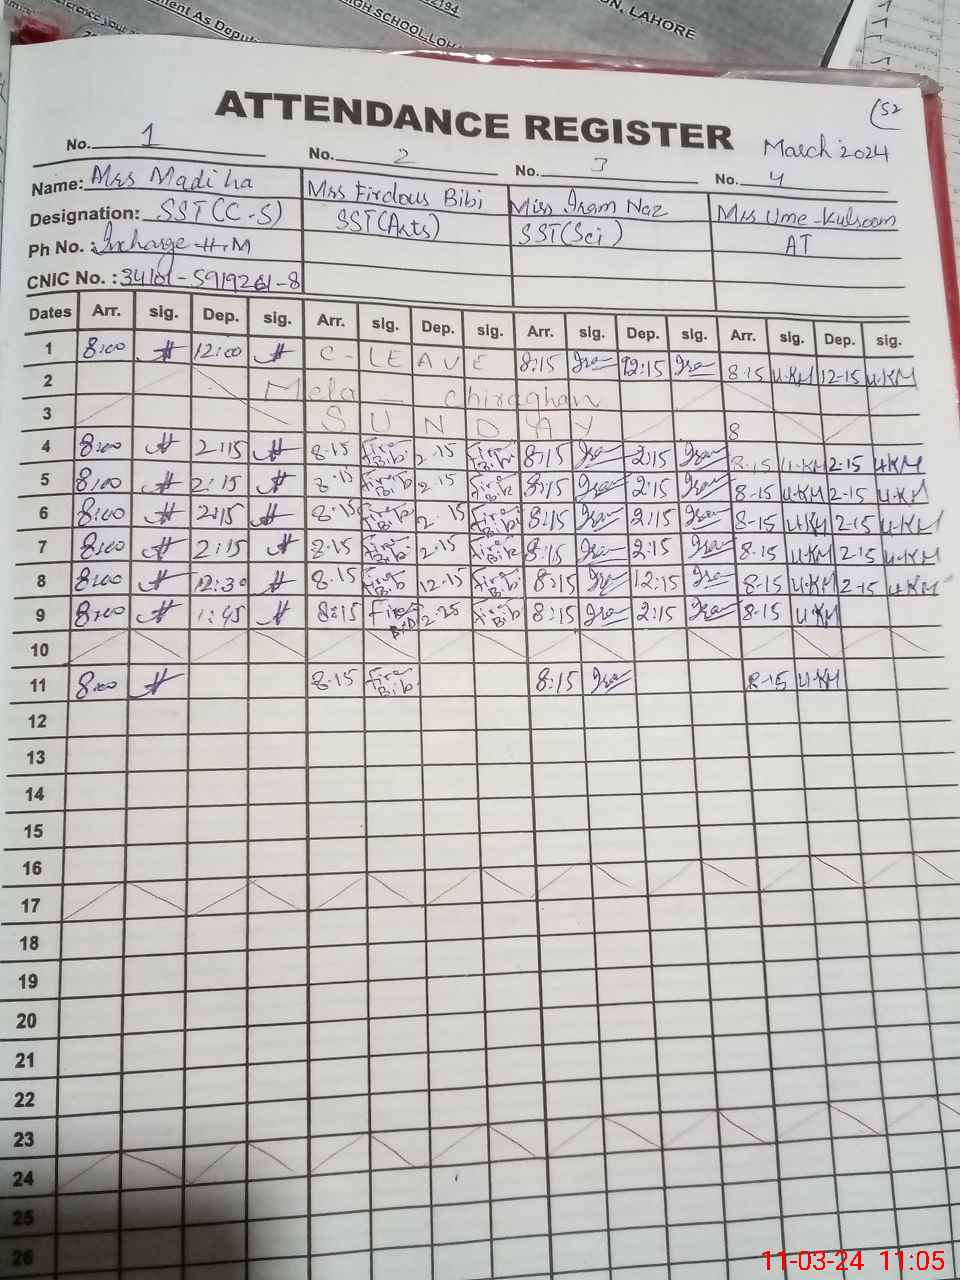 HIGH SCHOOL, LOH
ON, LAHORE
ment As Deput
52
ATTENDANCE REGISTER
March 2024
No. 1 No. 2 No. 3 No. 4
Name: Mrs Madiha Mrs Firdous Bibi Miss Iram Naz Mrs Ume-Kulsoom
Designation: SST(C-S) SST(Arts) SST(Sci) AT
Ph No.: Incharge H.M
CNIC No.: 34101-5919261-8
Dates Arr. sig. Dep. sig. Arr. sig. Dep. sig. Arr. sig. Dep. sig. Arr. sig. Dep. sig.
1 8:00 12:00 C-LEAVE 8:15 Iram 12:15 Iram 8-15 U.KM 12-15 U.KM
2 Mela - Chiraghan
3 SUNDAY 8
4 8:00 2:15 8-15 Fire Bib 2-15 Fire Bib 8:15 Iram 2:15 Iram 8-15 U.KM 2-15 U.KM
5 8:00 2:15 8-15 Fire Bib 2-15 Fire Bib 8:15 Iram 2:15 Iram 8-15 U.KM 2-15 U.KM
6 8:00 2:15 8-15 Fire Bib 2-15 Fire Bib 8:15 Iram 2:15 Iram 8-15 U.KM 2-15 U.KM
7 8:00 2:15 8-15 Fire Bib 2-15 Fire Bib 8:15 Iram 2:15 Iram 8-15 U.KM 2-15 U.KM
8 8:00 12:30 8-15 Fire Bib 12-15 Fire Bib 8:15 Iram 12:15 Iram 8-15 U.KM 2-15 U.KM
9 8:00 1:45 8:15 Fire Bib 2-25 Fire Bib 8:15 Iram 2:15 Iram 8-15 U.KM
10
11 8:00 8-15 Fire Bib 8:15 Iram 8-15 U.KM
12
13
14
15
16
17
18
19
20
21
22
23
24
25
26
11-03-24 11:05